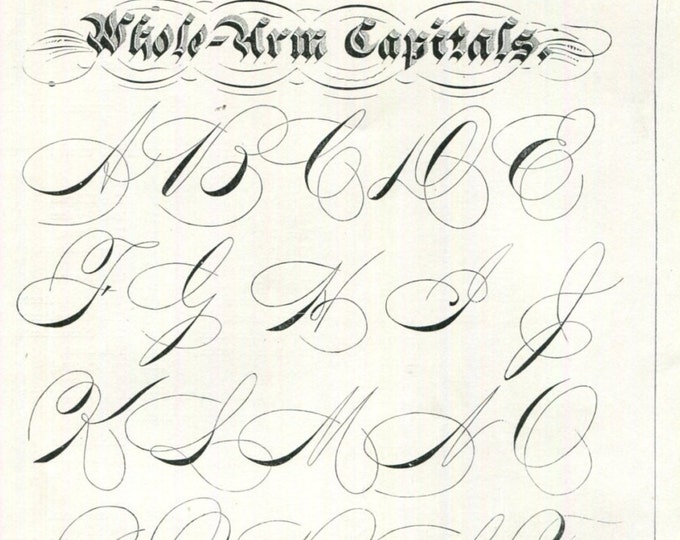 Whole-Arm Capitals.
A B C D E
F G H I J
K L M N O